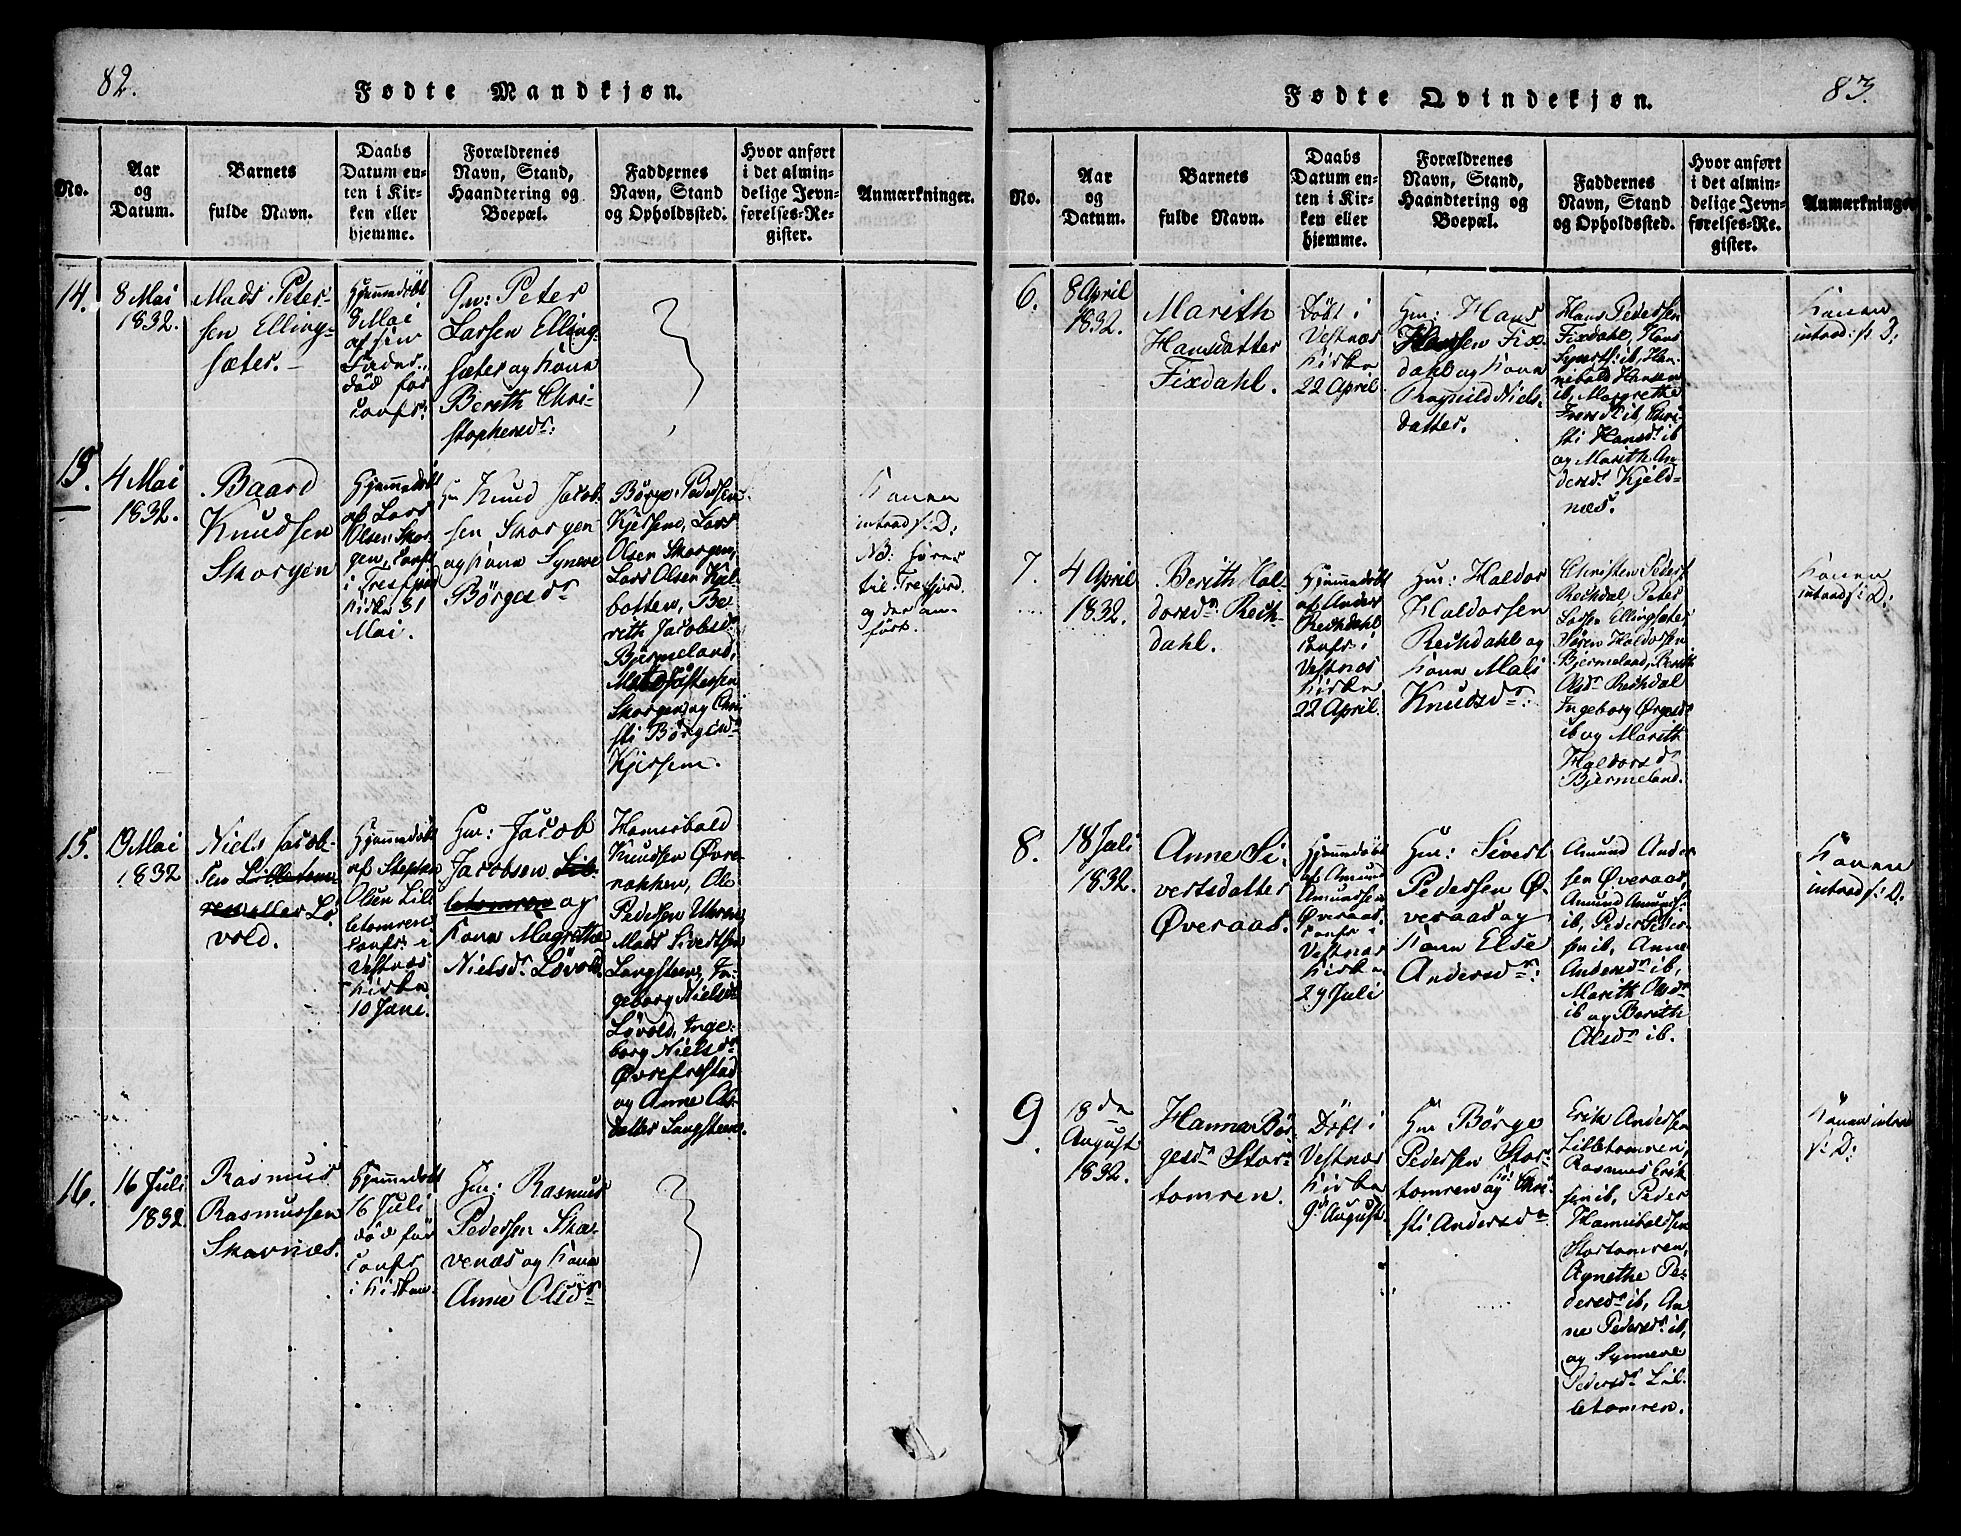 82.
Fødte Mandkjøn.
No.
Aar
og
Datum.
Barnets
fulde Navn.
Daabs
Datum en-
ten i Kir-
ken eller
hjemme.
Forældrenes
Navn, Stand,
Haandtering og
Boepæl.
Faddernes
Navn, Stand
og Opholdssted.
Hvor anført
i det almin-
delige Jevn-
førelses-Re-
gister.
Anmærkninger.
14.
8 Mai
1832.
Mads Peter-
sen Elling-
sæter.
Hjemmedøbt
8 Mai
af sin
Fader,
død før
Confr:
Gm: Peter
Larsen Elling-
sæter og Kone
Berith Chri-
stophersdr:
15.
4 Mai
1832.
Baard
Knudsen
Skorgen
Hjemmedøbt
af Lars
Olsen Skor-
gen, Confr
i Tresfjord
Kirke 31
Mai.
Gm Knud Jacob-
sen Skorgen
og Kone Synneve
Børgesdr
Børge Pedersen
Kjersem, Lars
Olsen Skorgen,
Lars Olsen Kjel-
botten, Be-
reth Jacobsdr
Bjermeland,
Skorgen, og Chri-
sti Børgesdr
Kjersem.
Konen
introds: D:
NB: hører
til Tresfjord
og der an-
ført.
15.
19 Mai
1832
Niels Jacob-
sen Lilletom-
ren eller Lø-
vold.
Hjemmedøbt
af Stephen
Olsen Lil-
letomren
Confr: i
Vestnæs
Kirke
10 Juni.
Gm: Jacob
Jacobsen Lil-
letomren og
Kone Magrethe
Nielsdr Løvold
Hannibald
Knudsen Øvre-
nakken, Ole
Pedersen
Mads Sivertsen
Langsteen, In-
geborg Nielsdr
Løvold, Inge-
borg Nielsdr
Øvrefrostad
og Anne Ols-
datter Langsteen.
16.
16 Juli
1832.
Rasmus
Rasmussen
Skavnæs.
Hjemmedøbt
16 Juli
død før
Confr
i Kirken.
Gm: Rasmus
Pedersen Ska-
venæs og Kone
Anne Olsdr
83.
Fødte Qvindekjøn.
No.
Aar
og
Datum.
Barnets
fulde Navn.
Daabs
Datum en-
ten i Kir-
ken eller
hjemme.
Forældrenes
Navn, Stand,
Haandtering og
Boepæl.
Faddernes
Navn, Stand
og Opholdssted.
Hvor anført
i det almin-
delige Jevn-
førelses-Re-
gister.
Anmærkninger
6.
8 April
1832.
Marith
Hansdatter
Fixdahl.
Døbt i
Vestnæs
Kirke
22 April
Gm: Hans
Hansen Fix-
dahl og Kone
Ragnild Niels-
datter.
Hans Pedersen
Fixdahl, Hans
Syvertsn: ib, Han-
nibald Hansen
ib, Margrethe
Iversdr: ib, Chri-
sti Hansdr ib
og Marith An-
dersdr Kjeld-
næs.
Konen
introd: s: D:
7.
4 April
1832.
Berith Hal-
dorsdr: Rech-
dahl.
Hjemmedøbt
af Anders
Rechdahl
Confr: i
Vestnæs
Kirke
22 April.
Gm: Haldor
Haldorsen
Rechdahl og
Kone Mali
Knudsdr:
Christen Peders:
Rechdal, Peter
Larsen Ellingsæter,
Søren Haldorsen
Bjermeland, Berith
Olsdr Rechdal
Ingeborg Ørgesdr
ib og Marith
Haldorsdr
Bjermeland.
Konen
introds: D:
8.
18 Juli
1832.
Anne Si-
vertsdatter
Øveraas.
Hjemmedøbt
af Amund
Amundsen
Øveraas,
Confr i
Vestnæs
Kirke
29 Juli
Gm: Sivert
Pedersen Ø-
veraas og
Kone Else
Andersdr:
Amund Ander-
sen Øveraas,
Amund Amunds:
ib, Peder Peder-
sen ib, Anne
Andersdr ib,
Marith Olsdr
ib og Berith
Olsdr ib.
Konen
introds: D:
9.
18de
August
1832.
Hanna Bør-
gesdr Stor-
tomren.
Døbt i
Vestnæs
Kirke
9d August
Gm Børge
Pedersen Stor-
tomren og Ko: Chri-
sti Andersdr
Erik Andersen
Lilletomren,
Rasmus Erik-
sen ib, Peder
Hannibaldsen
Stortomren,
Agnethe Pe-
dersdr ib, An-
ne Pedersdr: ib,
og Synneve
Pedersdr Lil-
letomren.
Konen introd
s: D: